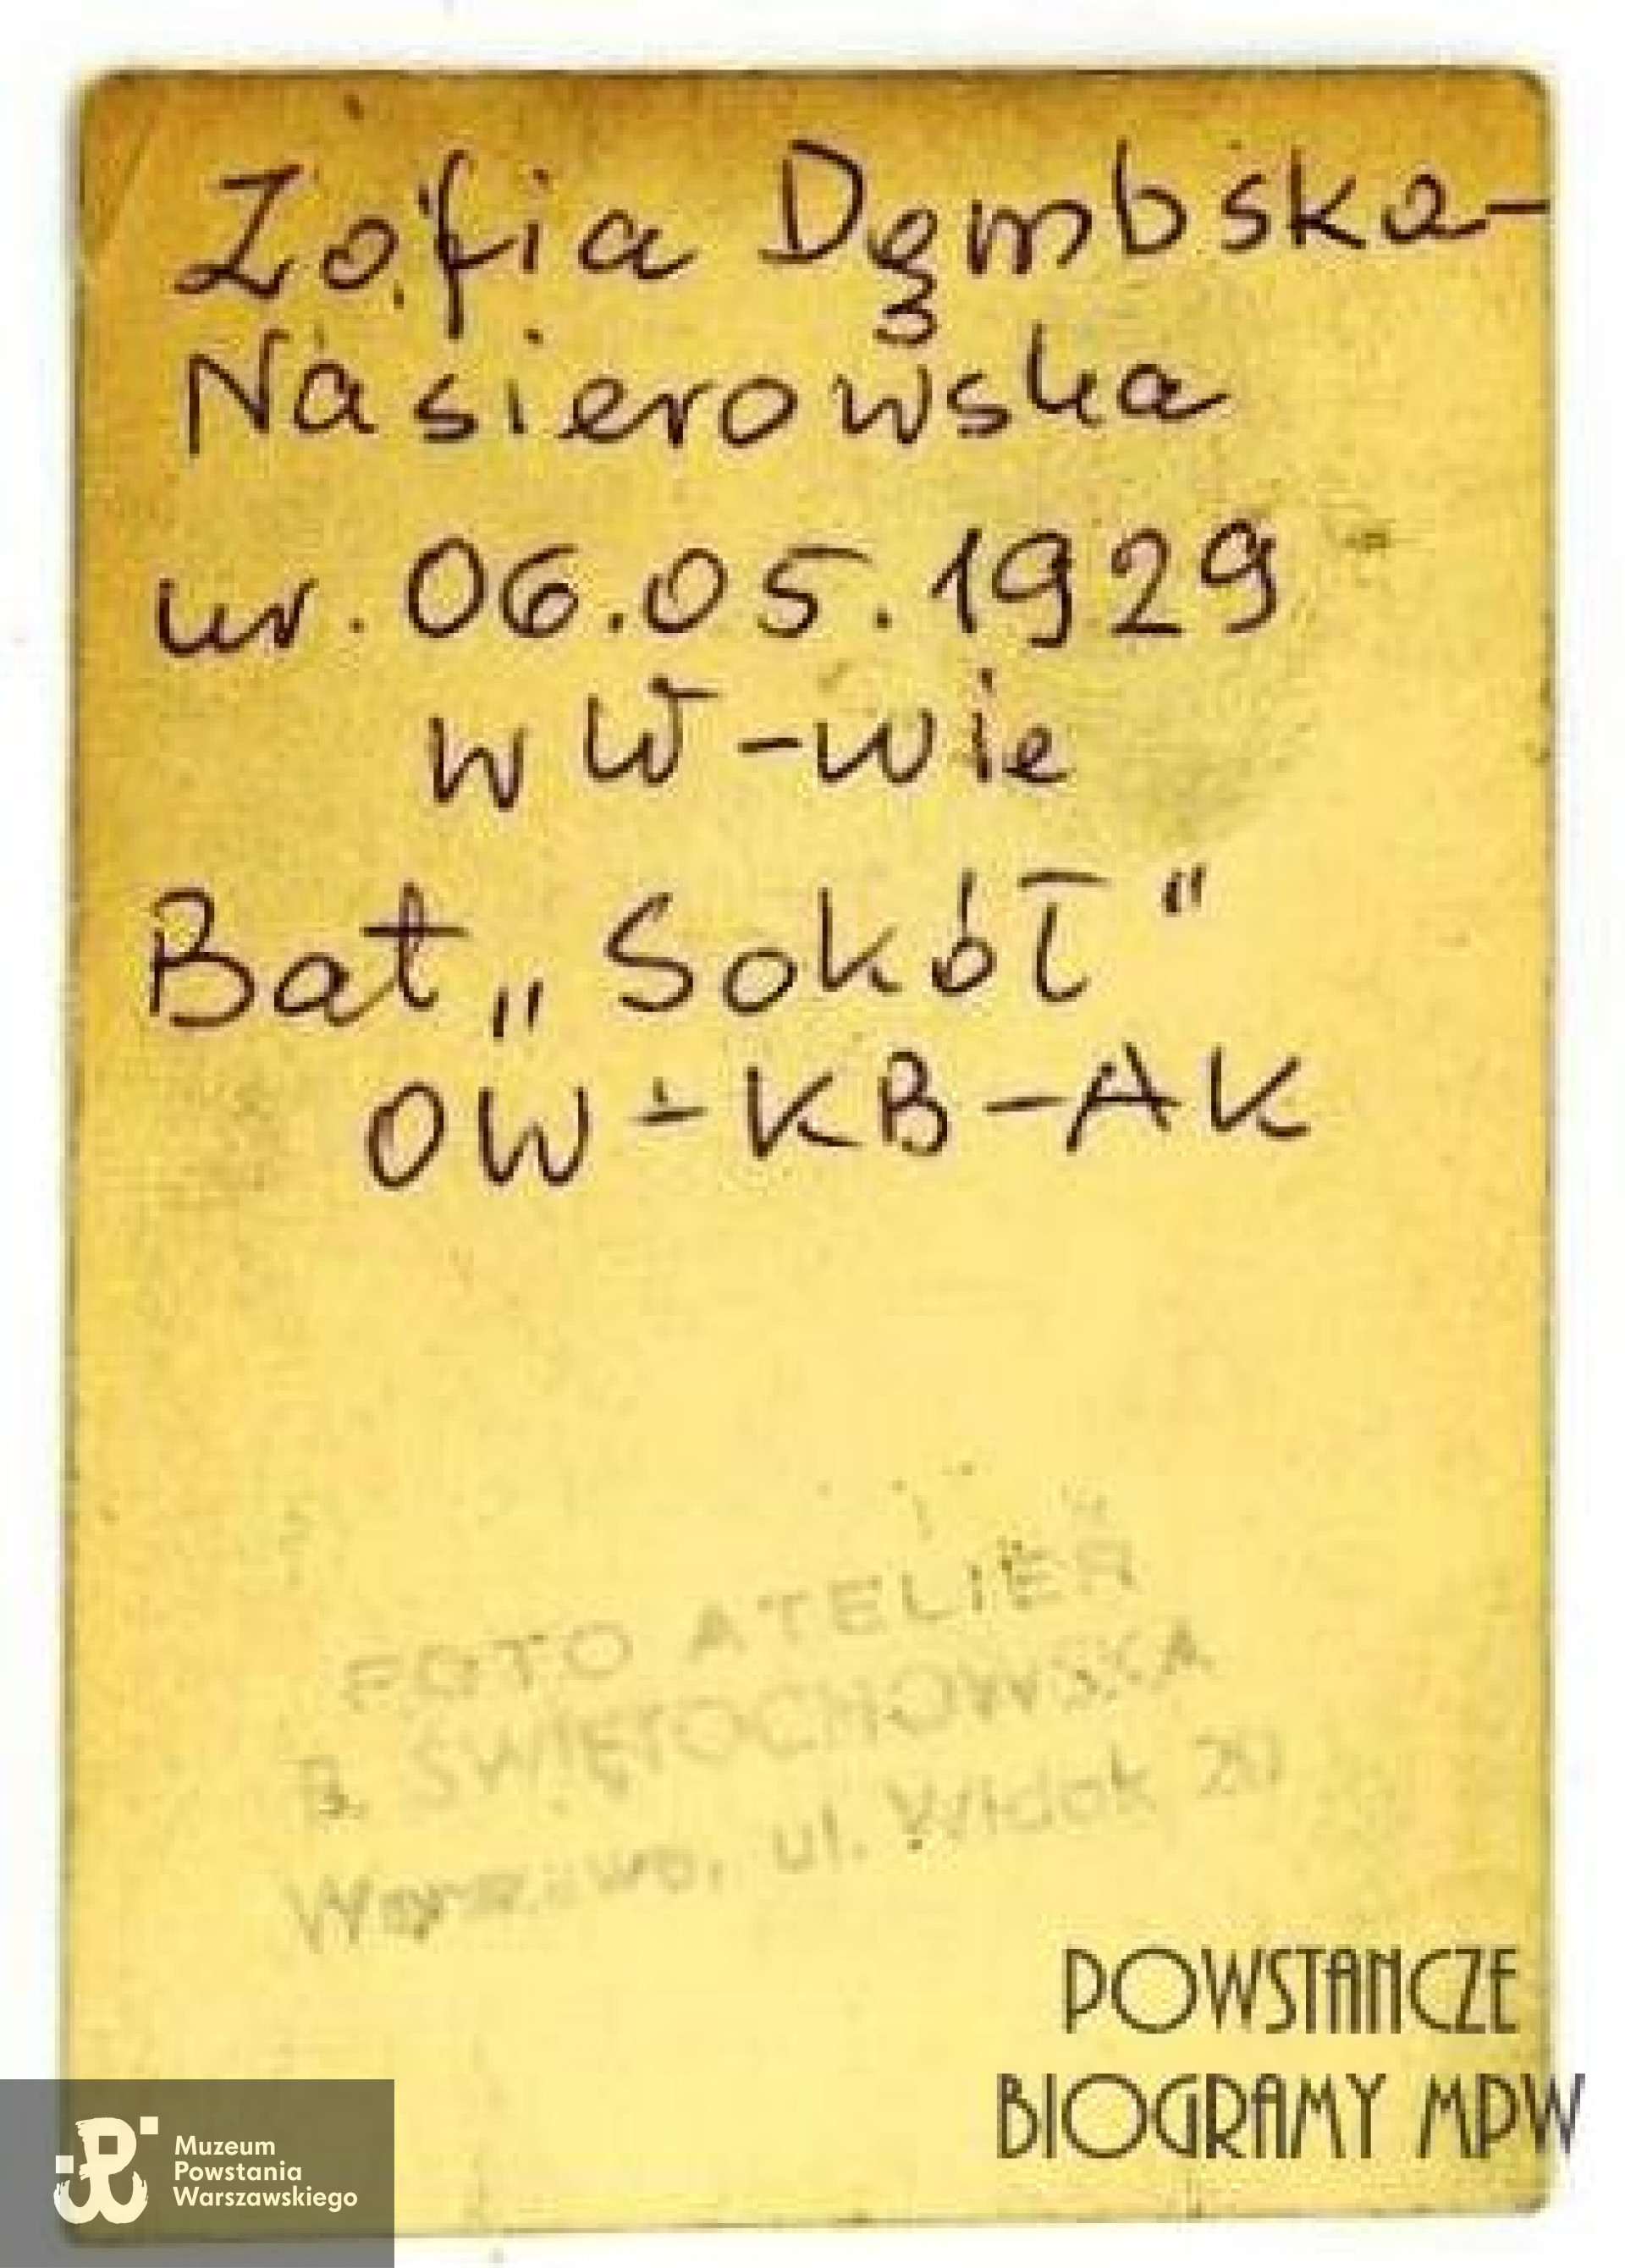 Zofia Dęmbska-
Nasierowska
ur. 06.05.1929
w W-wie
Bat „Sokół"
OW-KB-AK
FOTO ATELIER
B. ŚWIĘTOCHOWSKA
Warszawa, ul. Widok 20
POWSTANCZE
BIOGRAMY MPW
Muzeum
Powstania
Warszawskiego